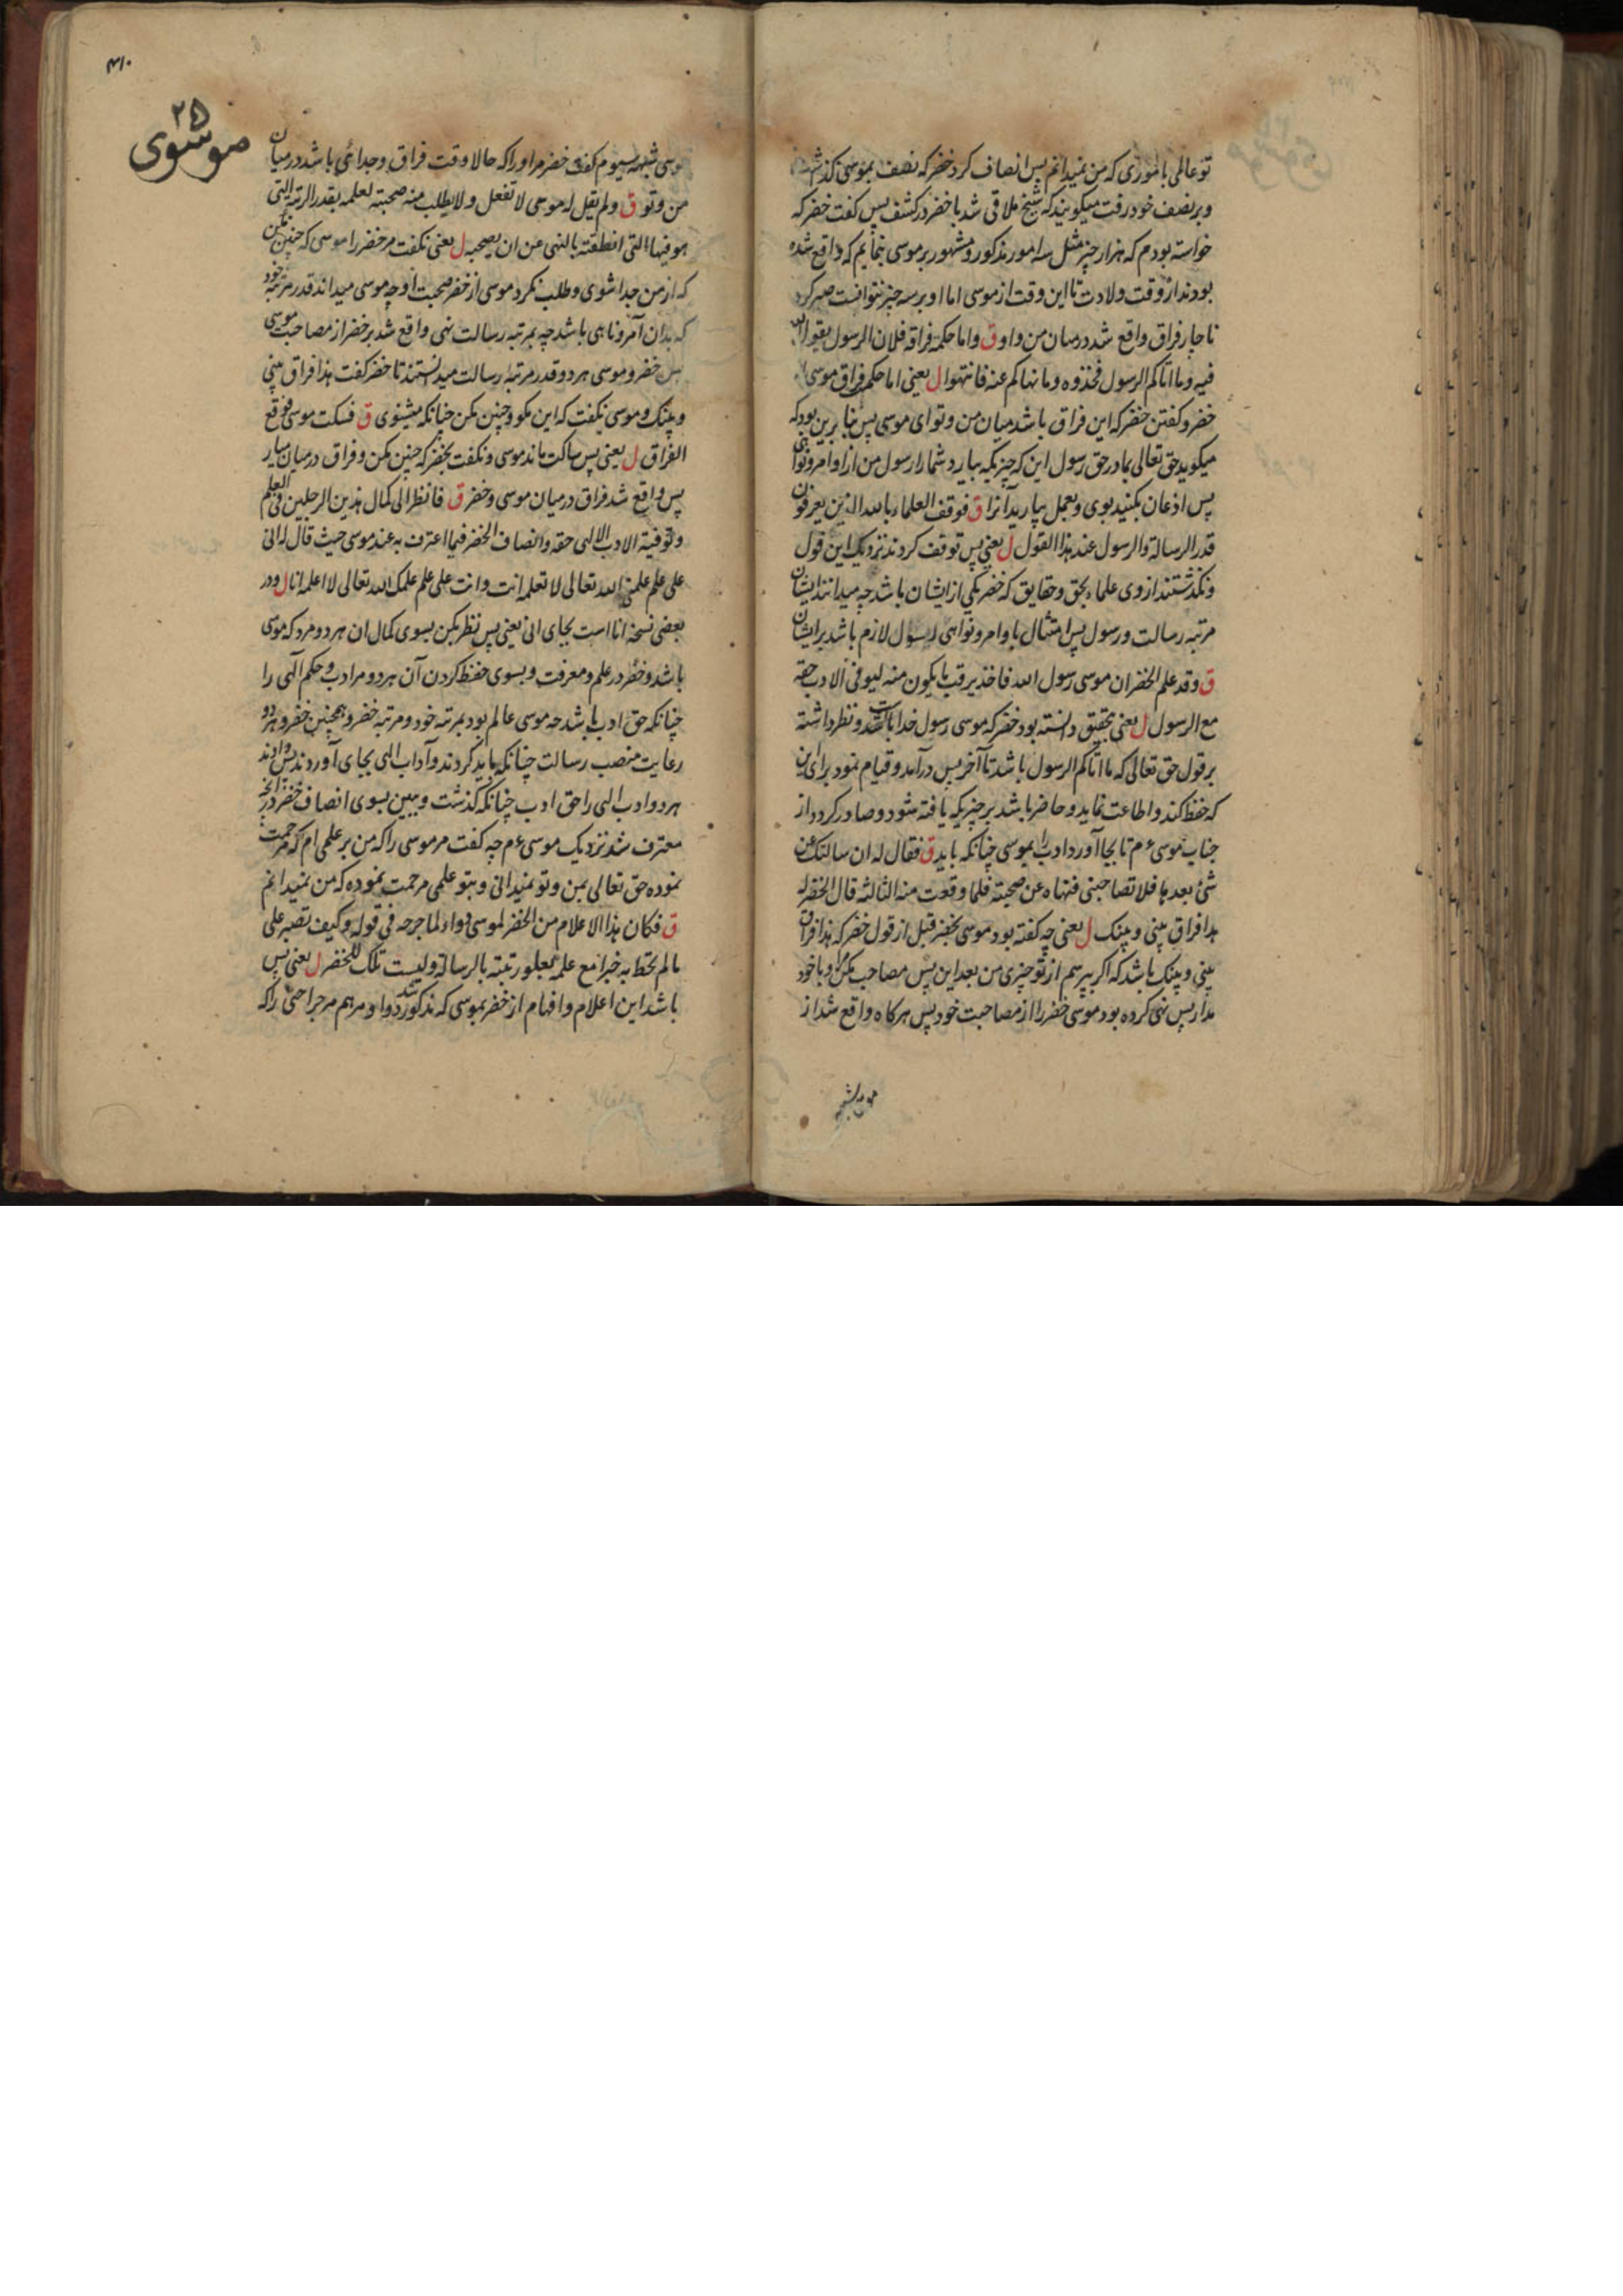 تو عالمی باموری که من نمیدانم پس انصاف کرد خضر که نصف بموسی
و بر نصف خود رفت میکویند که شیخ ملاقی شد با خضر در کشف پس کفت خضر که
خواسته بودم که هزار چیز مثل سه امور مذکور و مشهور بر موسی بنمایم که واقع شده
بودند از وقت ولادت تا این وقت از موسی اما او بر سه چیز نتوانست صبر کرد
ناچار فراق واقع شد درمیان من و او ق و اما حکمة فراقه فلان الرسول یقول الله
فیه وما اتاکم الرسول فخذوه وما نهاکم عنه فانتهوا ل یعنی اما حکم فراق موسی
خضر و کفتن خضر که این فراق باشد میان من و تو ای موسی پس بنا برین بود که
میکوید حق تعالی بما در حق رسول این که چیزیکه بیارد شما را رسول من از اوامر و نواهی
پس اذعان بکنید بوی و بعمل بیارید آنرا ق فوقف العلماء بالله الذین یعرفون
قدر الرسالة والرسول عند هذا القول ل یعنی پس توقف کردند نزدیک این قول
و نکذشتند از وی علماء بحق و حقایق که خضر یکی از ایشان باشد چه میدانند ایشان
مرتبه رسالت و رسول پس امتثال باوامر و نواهی رسول لازم باشد بر ایشان
ق وقد علم الخضر ان موسی رسول الله فاخذ یرقب ما یکون منه لیوفی الادب حقه
مع الرسول ل یعنی بتحقیق دانسته بود خضر که موسی رسول خدا باشد و نظر داشته
بر قول حق تعالی که ما اتاکم الرسول باشد تا آخر پس درآمد و قیام نمود برای این
که حفظ کند و اطاعت نماید و حاضر باشد بر چیزیکه یافته شود و صادر کردد از
جناب موسی ءم تا بجا آورد ادب را بموسی چنانکه باید ق فقال له ان سالتک عن
شئ بعدها فلا تصاحبنی فنهاه عن صحبته فلما وقعت منه الثالثة قال الخضر له
هذا فراق بینی و بینک ل یعنی چه کفته بود موسی بخضر قبل از قول خضر که هذا فراق
بینی و بینک باشد که اکر بپرسم از تو چیزی من بعد این پس مصاحب مکن مرا و با خود
مدار پس نهی کرده بود موسی خضر را از مصاحبت خود پس هرکاه واقع شد از
۴۱۰
۲۵
موسوی
موسی شبهه سیوم کفت خضر مر او را که حالا وقت فراق و جدائی باشد درمیان
من و تو ق ولم یقل له موسی لا تفعل ولا یطلب منه صحبته لعلمه بقدر الرتبة التی
هو فیها التی انطقته بالنهی عن ان یصحبه ل یعنی نکفت مر خضر را موسی که چنین مکن
که از من جدا شوی و طلب نکرد موسی از خضر صحبت او چه موسی میداند قدر مرتبه خود
که بدان آمر و ناهی باشد چه بمرتبه رسالت نهی واقع شد بر خضر از مصاحبت موسی
پس خضر و موسی هر دو قدر مرتبه رسالت میدانستند تا خضر کفت هذا فراق بینی
و بینک و موسی نکفت که این مکو و چنین مکن چنانکه میشنوی ق فسکت موسی فوقع
الفراق ل یعنی پس ساکت ماند موسی و نکفت بخضر که چنین مکن و فراق درمیان میار
پس واقع شد فراق درمیان موسی و خضر ق فانظر الی کمال هذین الرجلین فی العلم
وتوفیة الادب الالهی حقه وانصاف الخضر فیما اعترف به عند موسی حیث قال له انی
علی علم علمنی الله تعالی لا تعلمه انت وانت علی علم علمک الله تعالی لا اعلمه انا ل و در
بعضی نسخه انا است بجای انی یعنی پس نظر بکن بسوی کمال ان هر دو مرد که موسی
باشد و خضر در علم و معرفت و بسوی حفظ کردن آن هر دو مر ادب و حکم آلهی را
چنانکه حق ادب باشد چه موسی عالم بود بمرتبه خود و مرتبه خضر و همچنین خضر و هر دو
رعایت منصب رسالت چنانکه باید کردند و آداب الهی بجای آوردند پس دادند
هر دو ادب الهی را حق ادب چنانکه کذشت و ببین بسوی انصاف خضر در آنچه
معترف شد نزدیک موسی ءم چه کفت مر موسی را که من بر علمی ام که مرحمت
نموده حق تعالی بمن و تو نمیدانی و بتو علمی مرحمت نموده که من نمیدانم
ق فکان هذا الاعلام من الخضر لموسی دواء لما جرحه فی قوله وکیف تصبر علی
ما لم تحط به خبرا مع علمه بعلو رتبته بالرسالة ولیست تلک للخضر ل یعنی پس
باشد این اعلام و افهام از خضر بموسی که مذکور شد دوا و مرهم مر جراحتی را که